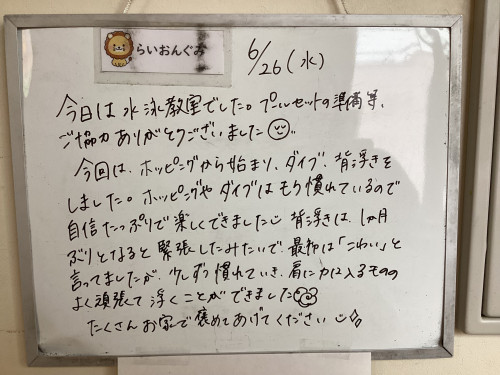 らいおんぐみ
6/26(水)
今日は水泳教室でした。プールセットの準備等、
ご協力ありがとうございました
今回は、ホッピングから始まり、ダイブ、背浮きを
しました。ホッピングやダイブはもう慣れているので
自信たっぷりで楽しくできました 背浮きは、1か月
ぶりとなると緊張したみたいで、最初は「こわい」と
言ってましたが、少しずつ慣れていき、肩に力は入るものの
よく頑張って浮くことができました
たくさんお家で褒めてあげてください